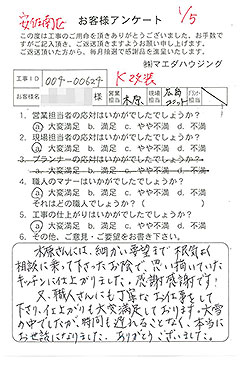 安佐南区 お客様アンケート 1/5
この度は工事のご用命を頂きありがとうございました。お手数で
すがご記入頂き、ご返送頂きますようお願い申し上げます。
ご返送頂いた方から、毎月抽選で感謝品を進呈いたします。
㈱マエダハウジング
工事ID 004-00624 K改装
お客様名 様 営業担当 木原 現場担当
1. 営業担当者の応対はいかがでしたでしょうか?
ⓐ大変満足 b. 満足 c. やや不満 d. 不満
2. 現場担当者の応対はいかがでしたでしょうか?
ⓐ大変満足 b. 満足 c. やや不満 d. 不満
3. プランナーの応対はいかがでしたでしょうか?
a. 大変満足 b. 満足 c. やや不満 d. 不満
4. 職人のマナーはいかがでしたでしょうか?
ⓐ大変満足 b. 満足 c. やや不満 d. 不満
それはどの職人でしょうか?( )
5. 工事の仕上がりはいかがでしたでしょうか?
ⓐ大変満足 b. 満足 c. やや不満 d. 不満
6. その他、ご意見・ご要望をお書き下さい。
木原さんには、細かい要望まで根気よく
相談に乗って下さったお陰で、思い描いていた
キッチンに仕上がりました。感謝感謝です!
又、職人さんにも丁寧なお仕事をして
下さり、仕上がりも大変満足しております。大雪
の中でしたが、時間も遅れることなく、本当に
お世話になりました。ありがとうございました。